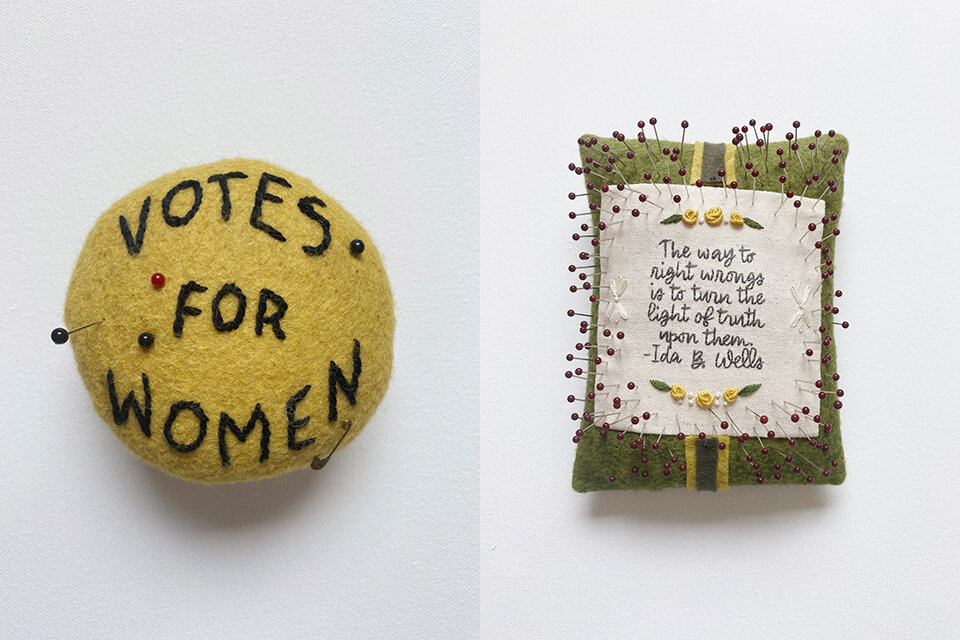 VOTES
FOR
WOMEN
The way to
right wrongs
is to turn the
light of truth
upon them.
-Ida B. Wells